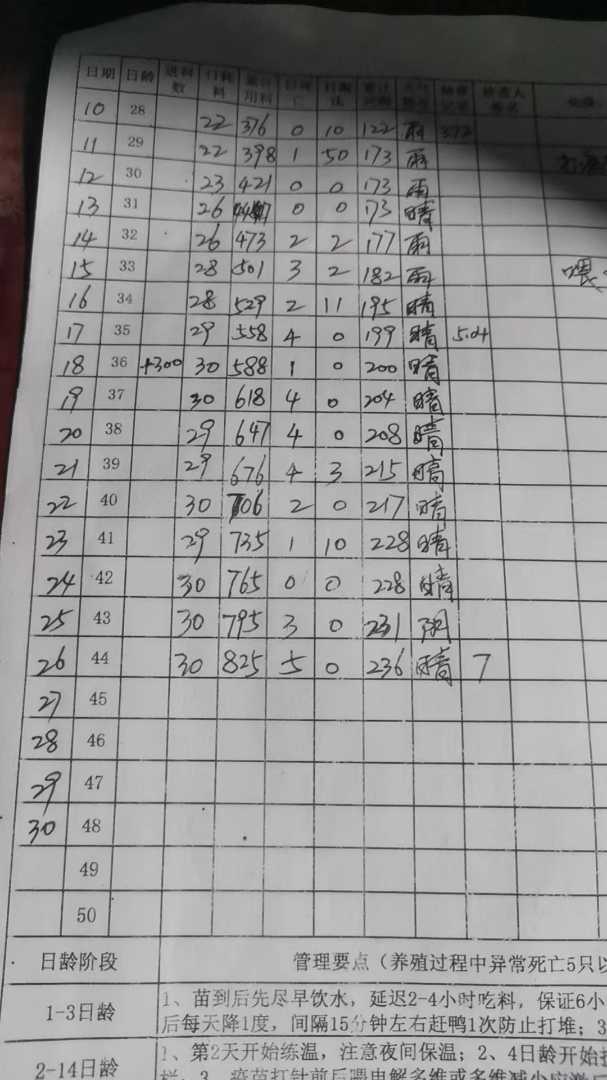 日期 日龄 进料数 日耗料 累计用料 日死亡 日淘汰 累计死淘 天气情况 抽查记录 检查人签名
10 28 22 376 0 10 122 雨 372
11 29 22 398 1 50 173 雨
12 30 23 421 0 0 173 雨
13 31 26 447 0 0 173 晴
14 32 26 473 2 2 177 雨
15 33 28 501 3 2 182 雨 喂
16 34 28 529 2 11 195 晴
17 35 29 558 4 0 199 晴 5.04
18 36 +300 30 588 1 0 200 晴
19 37 30 618 4 0 204 晴
20 38 29 647 4 0 208 晴
21 39 29 676 4 3 215 晴
22 40 30 706 2 0 217 晴
23 41 29 735 1 10 228 晴
24 42 30 765 0 0 228 晴
25 43 30 795 3 0 231 阴
26 44 30 825 5 0 236 晴 7
27 45
28 46
29 47
30 48
49
50
日龄阶段 管理要点（养殖过程中异常死亡5只以
1-3日龄 1、苗到后先尽早饮水，延迟2-4小时吃料，保证6小
后每天降1度，间隔15分钟左右赶鸭1次防止打堆；3
2-14日龄 1、第2天开始练温，注意夜间保温；2、4日龄开始
栏，3、疫苗打针前后喂电解多维或多维减少应激